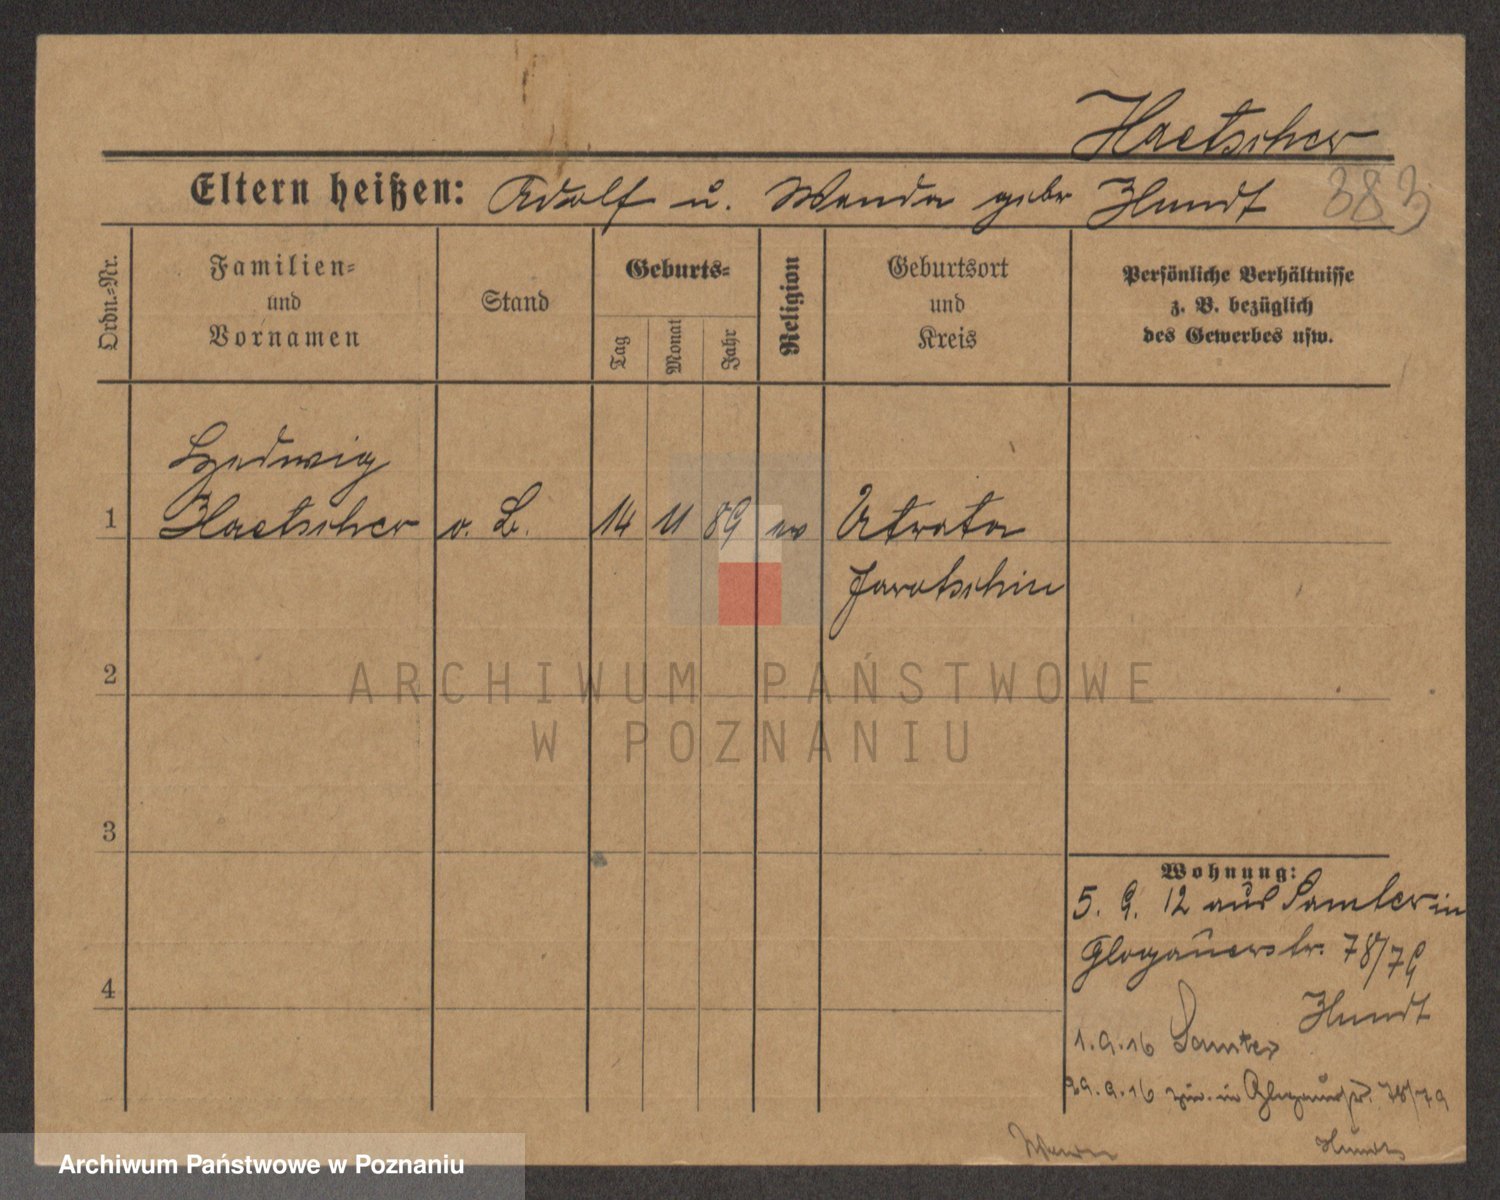 Haetscher
Eltern heißen: Adolf u. Wanda gebr Hundt 383
Ordn.-Nr.
Familien-
und
Vornamen
Stand
Geburts-
Tag
Monat
Jahr
Religion
Geburtsort
und
Kreis
Persönliche Verhältnisse
z. B. bezüglich
des Gewerbes usw.
Hedwig
1 Haetscher o. B. 14 11 89 ev Utrata
Jarotschin
2
ARCHIWUM PAŃSTWOWE
W POZNANIU
3
Wohnung:
5. 9. 12 aus Samter in
Glogauerstr. 78/79
4
Hundt
1.9.16 Samter
29.9.16 zur. in Glogauerstr. 78/79
Hundt
Archiwum Państwowe w Poznaniu